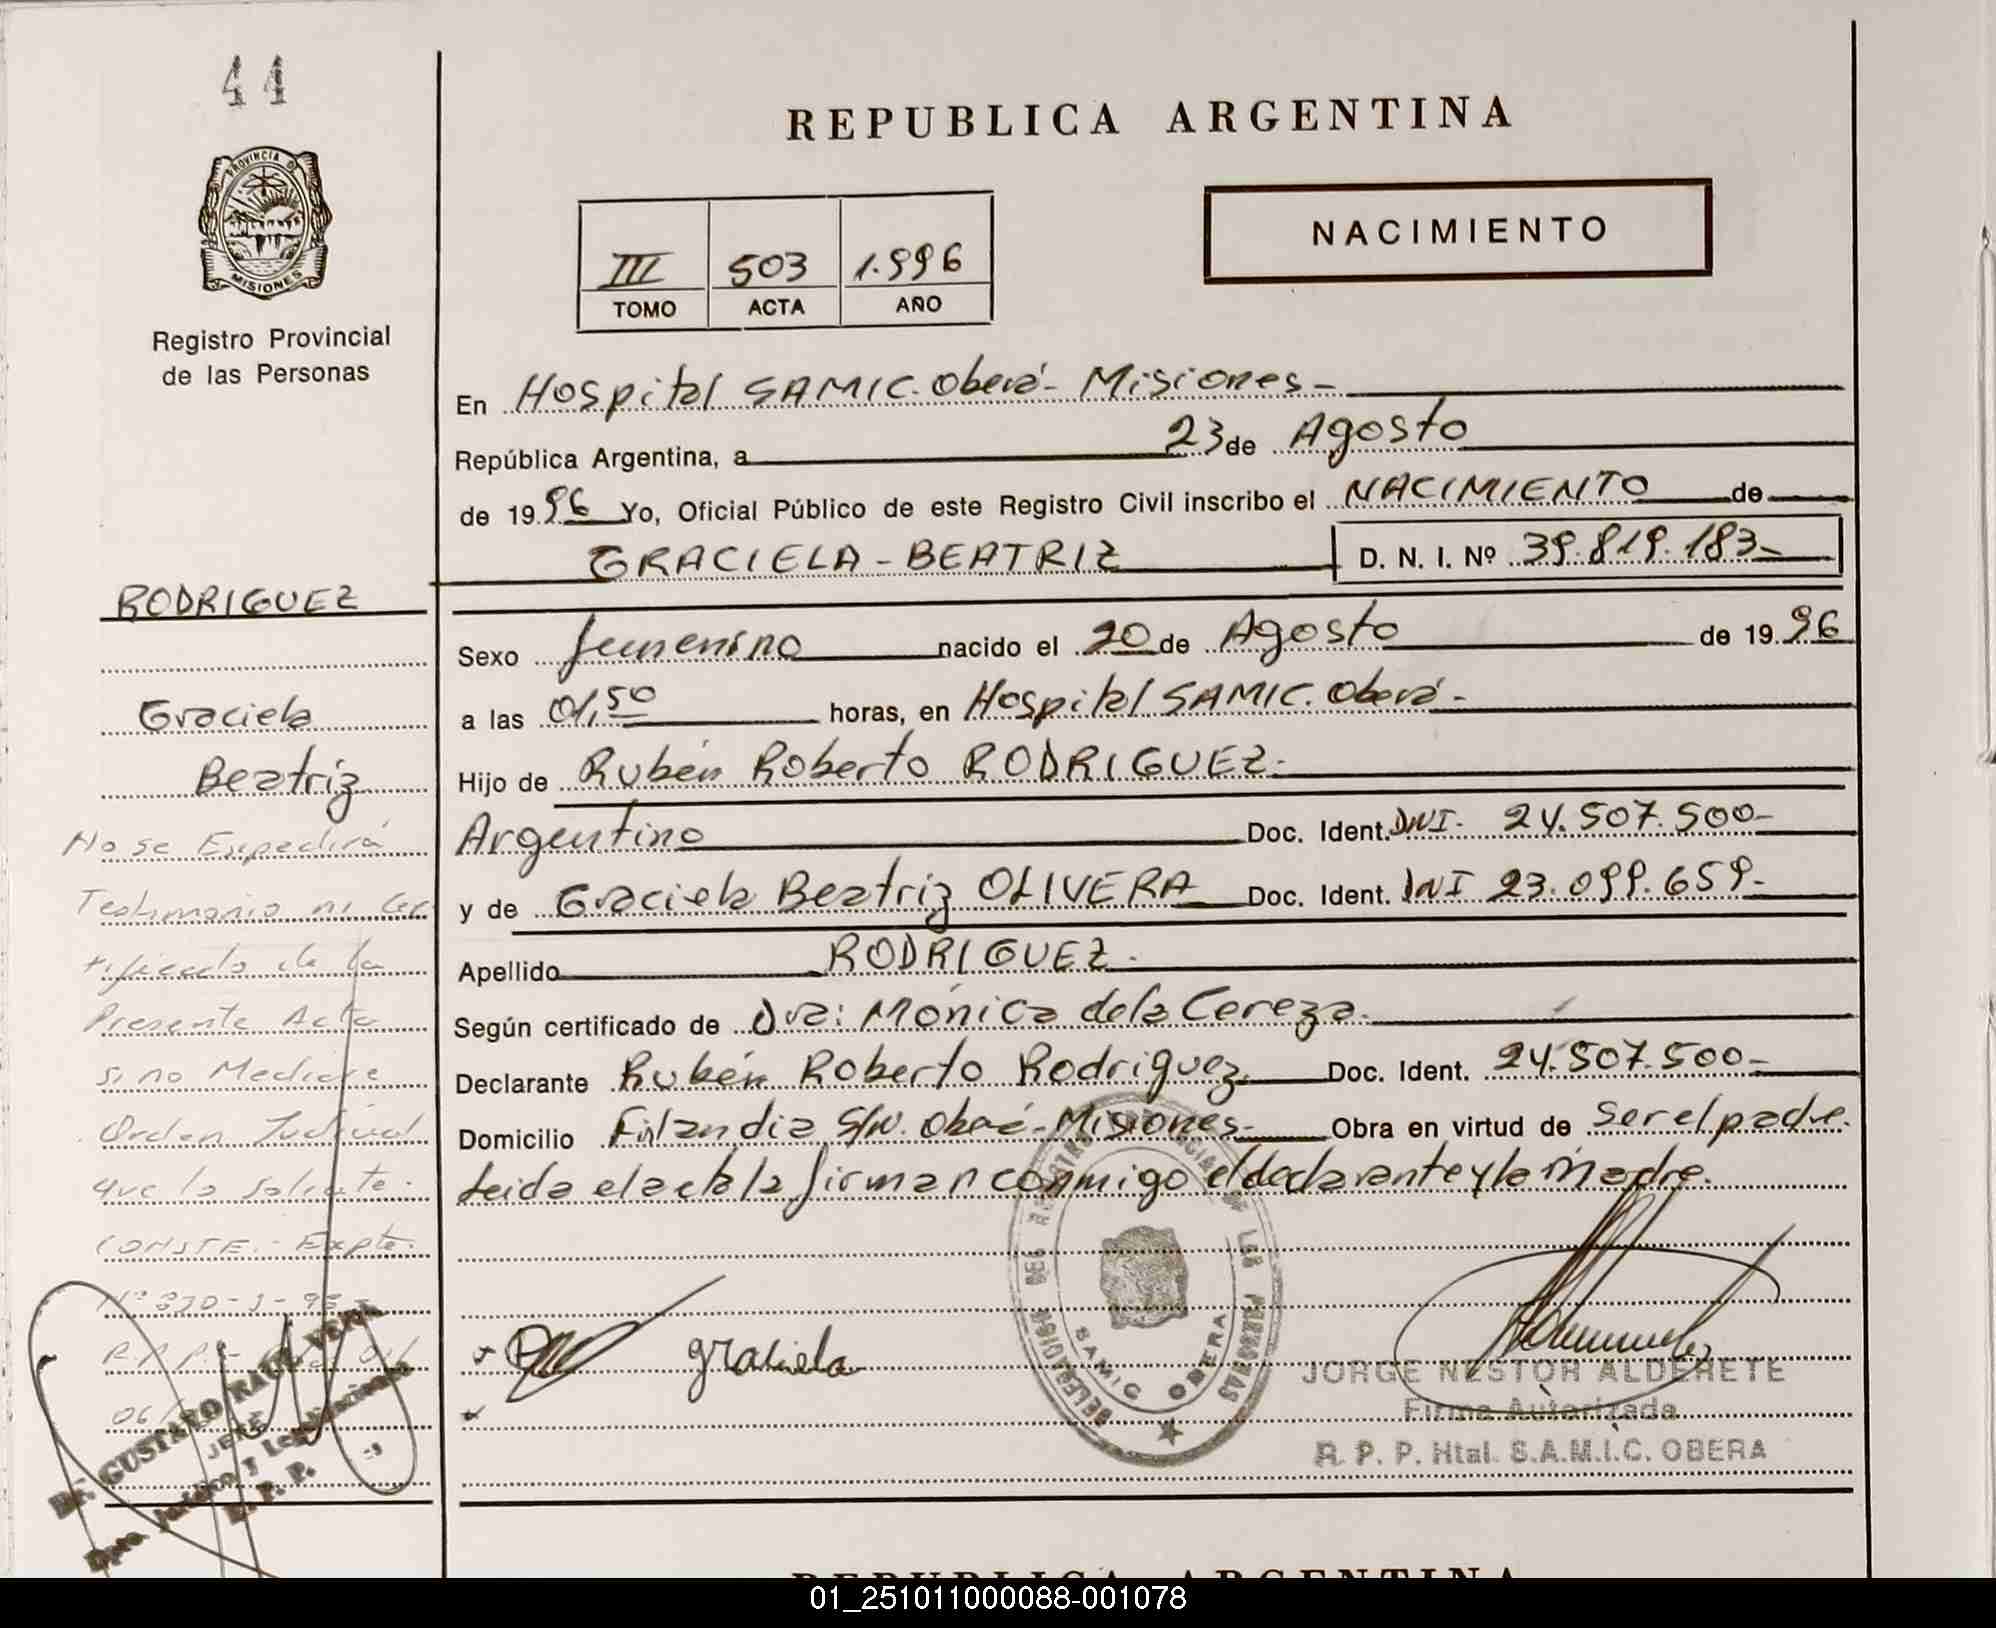 44
REPUBLICA ARGENTINA
PROVINCIA DE
MISIONES
Registro Provincial
de las Personas
NACIMIENTO
III 503 1.996
TOMO ACTA AÑO
En Hospital SAMIC. Oberá - Misiones -
República Argentina, a 23 de Agosto
de 1996 Yo, Oficial Público de este Registro Civil inscribo el NACIMIENTO de
GRACIELA - BEATRIZ D. N. I. Nº 39.819.183-
RODRIGUEZ
Sexo femenino nacido el 20 de Agosto de 1996
Graciela
a las 01,50 horas, en Hospital SAMIC. Oberá -
Beatriz
Hijo de Rubén Roberto RODRIGUEZ-
Argentino Doc. Ident. DNI- 24.507.500-
y de Graciela Beatriz OLIVERA Doc. Ident. DNI 23.099.659-
Apellido RODRIGUEZ -
Según certificado de Dra: Mónica dela Cereza.
Declarante Rubén Roberto Rodriguez Doc. Ident. 24.507.500-
Domicilio Finlandia S/N. Oberá - Misiones - Obra en virtud de ser el padre.
Leida el acta la firman conmigo el declarante y la Madre.
No se Expedirá
Testimonio ni Cer
tificado de la
Presente Acta
si no Mediare
Orden Judicial
que lo solicite.
CONSTE.- Expte.
graciela
DELEGACION DEL REGISTRO PROVINCIAL DE LAS PERSONAS
SAMIC OBERA
JORGE NESTOR ALDERETE
Firma Autorizada
R. P. P. Htal. S.A.M.I.C. OBERA
Dr. GUSTAVO RAUL VERA
JEFE
Dpto. Jurídico y Legalizaciones
R. P. P.
REPUBLICA ARGENTINA
01_251011000088-001078